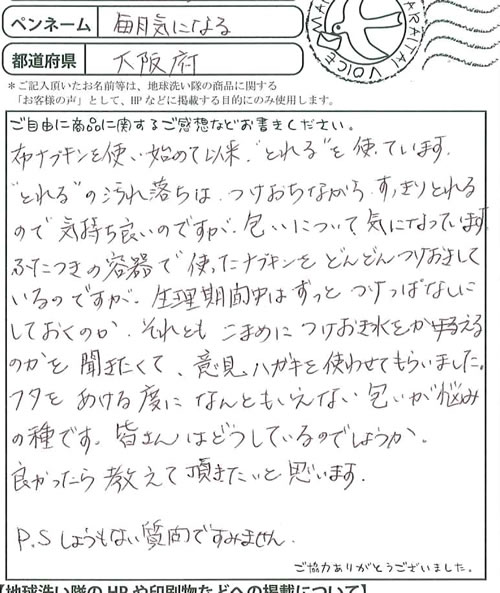 ペンネーム 毎月気になる
都道府県 大阪府
MA
ARAITAI VOICE
＊ご記入頂いたお名前等は、地球洗い隊の商品に関する
「お客様の声」として、HPなどに掲載する目的にのみ使用します。
ご自由に商品に関するご感想などお書きください。
布ナプキンを使い始めて以来、"とれる"を使っています。
"とれる"の汚れ落ちは、つけおちながら、すっきりとれる
ので気持ち良いのですが、匂いについて気になっています。
ふたつきの容器で使ったナプキンをどんどんつけおきして
いるのですが、生理期間中はずっとつけっぱなしに
しておくのか、それともこまめにつけおき水をかえる
のかを聞きたくて、意見ハガキを使わせてもらいました。
フタをあける度になんともいえない匂いが悩み
の種です。皆さんはどうしているのでしょうか。
良かったら教えて頂きたいと思います。
P.S しょうもない質問ですみません。
ご協力ありがとうございました。
【地球洗い隊のHPや印刷物などへの掲載について】